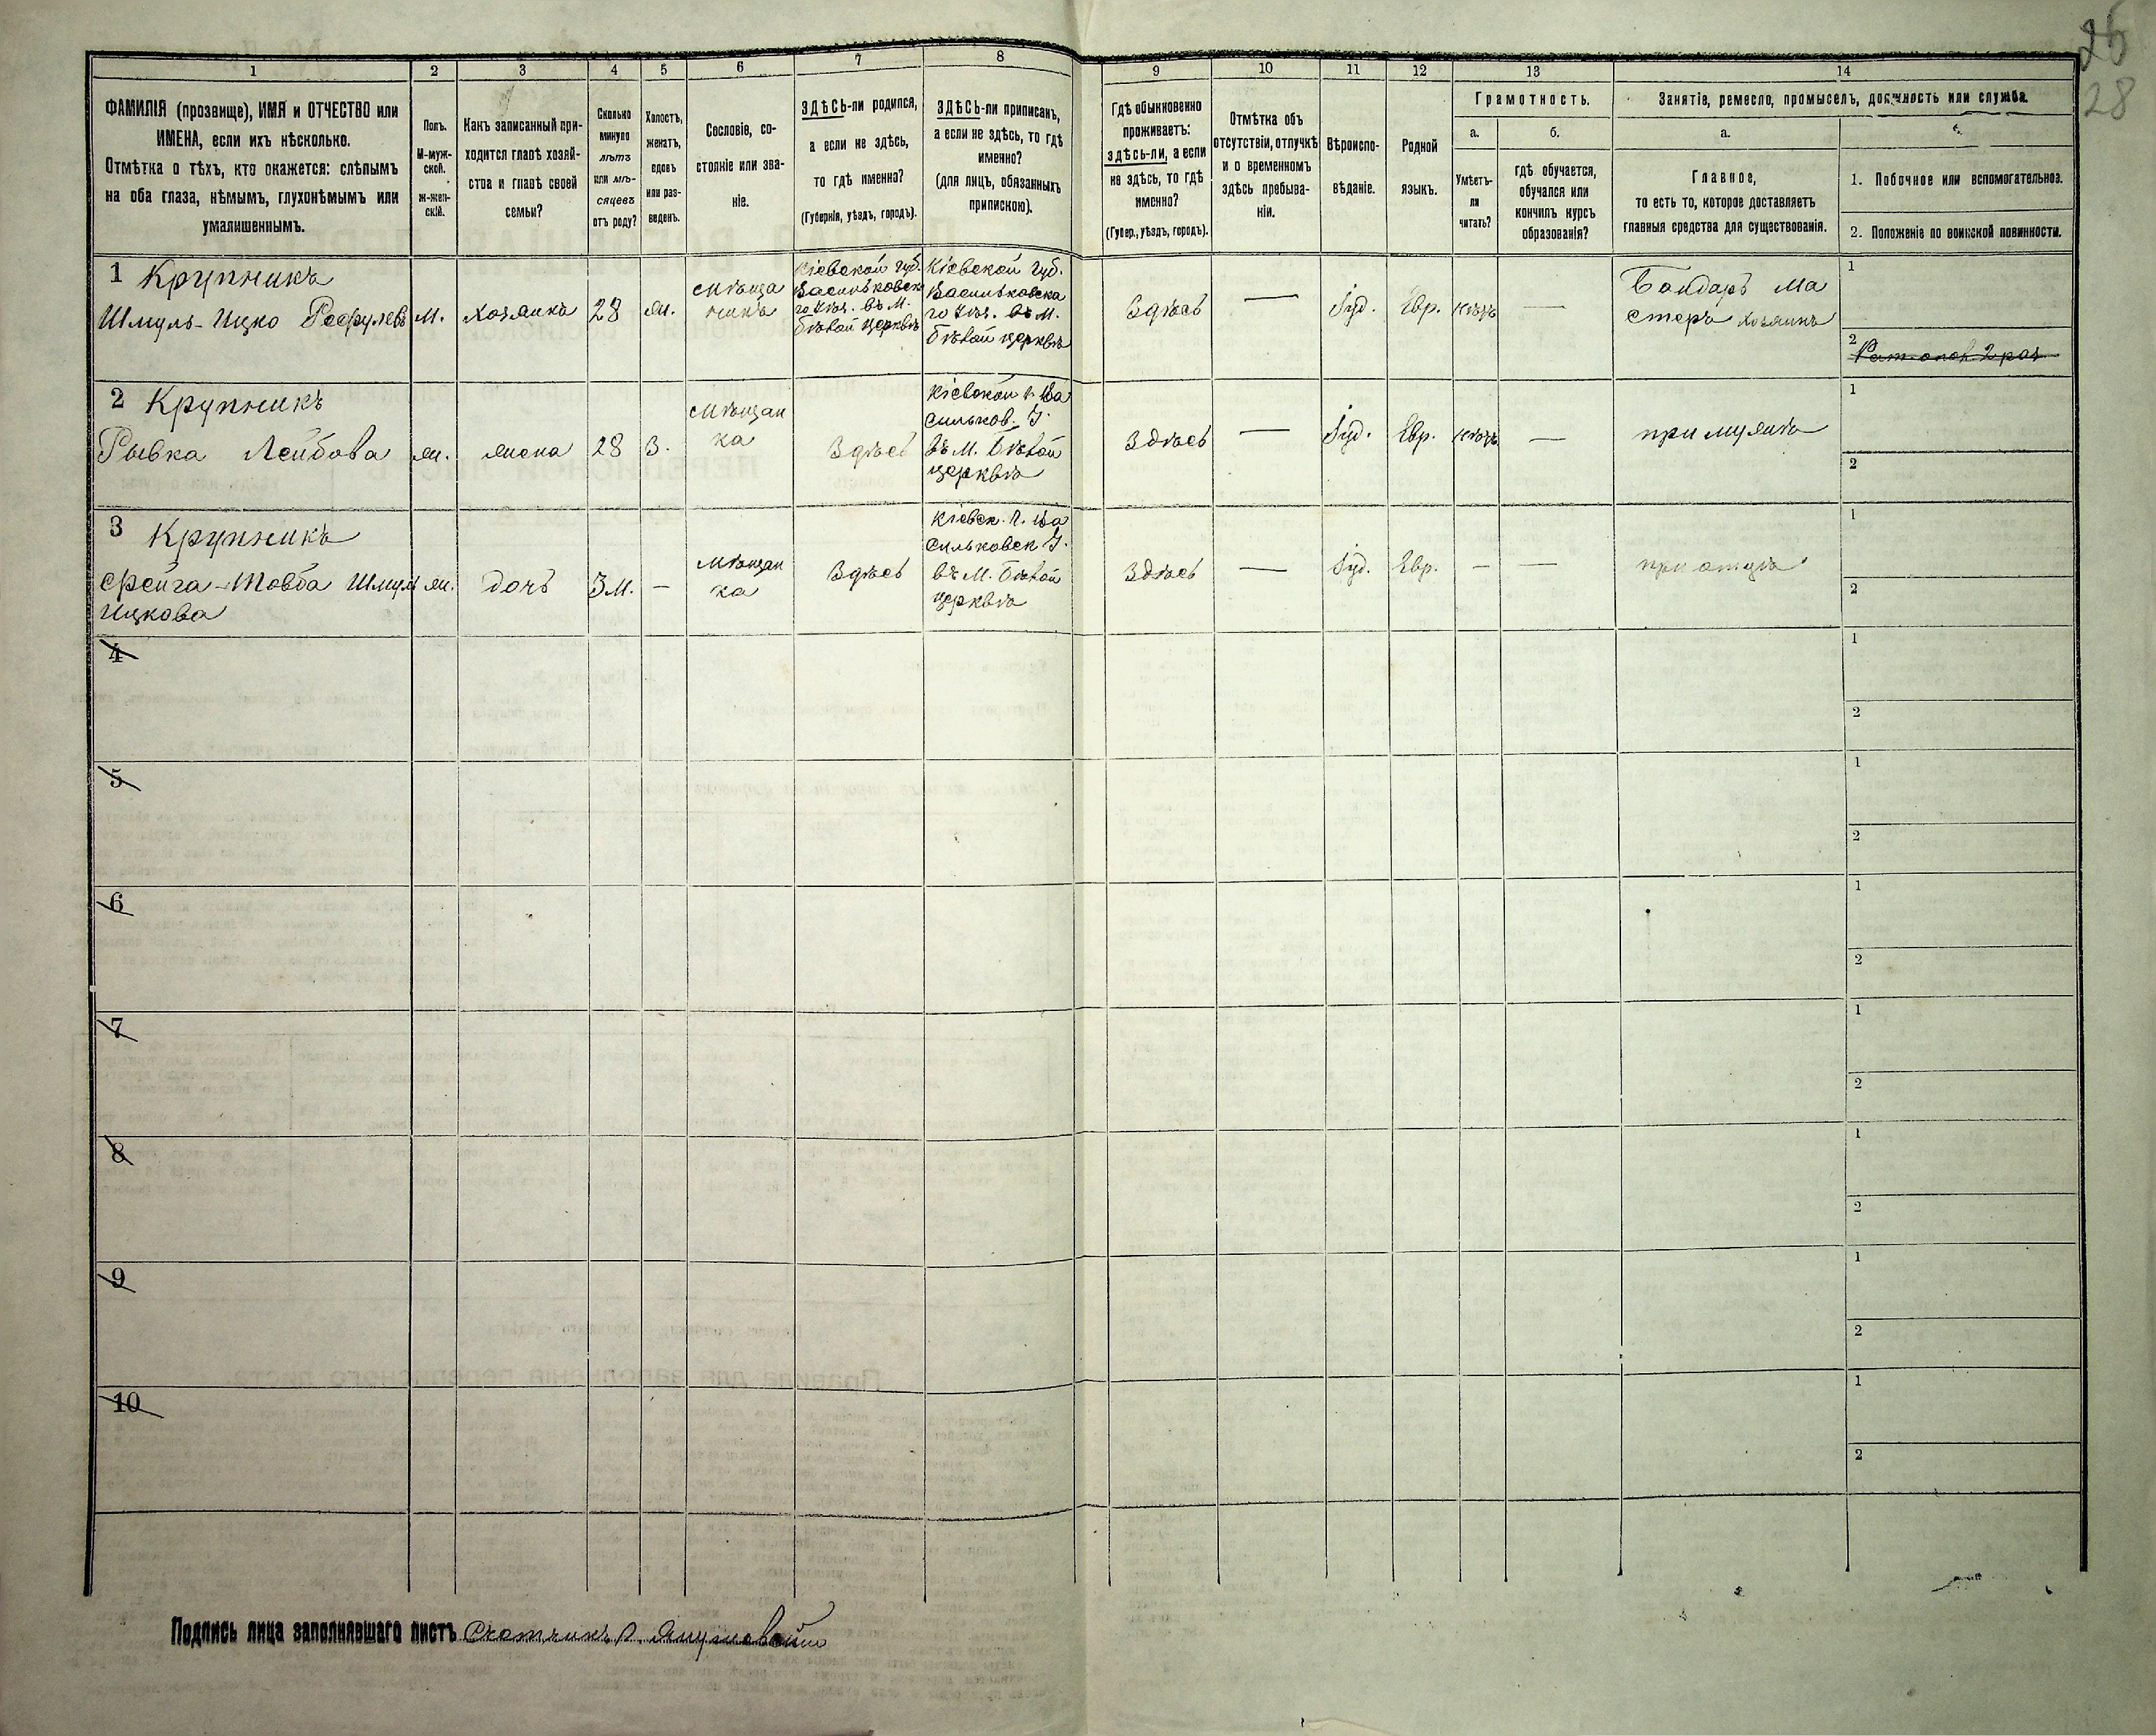 25
28
1
2
3
4
5
6
7
8
9
10
11
12
13
14
ФАМИЛІЯ (прозвище), ИМЯ и ОТЧЕСТВО или
ИМЕНА, если ихъ нѣсколько.
Отмѣтка о тѣхъ, кто окажется: слѣпымъ
на оба глаза, нѣмымъ, глухонѣмымъ или
умалишеннымъ.
Полъ.
М-муж-
ской.
ж-жен-
скій.
Какъ записанный при-
ходится главѣ хозяй-
ства и главѣ своей
семьи?
Сколько
минуло
лѣтъ
или мѣ-
сяцевъ
отъ роду?
Холостъ,
женатъ,
вдовъ
или раз-
веденъ.
Сословіе, со-
стояніе или зва-
ніе.
ЗДѢСЬ-ли родился,
а если не здѣсь,
то гдѣ именно?
(Губернія, уѣздъ, городъ).
ЗДѢСЬ-ли приписанъ,
а если не здѣсь, то гдѣ
именно?
(для лицъ, обязанныхъ
припискою).
Гдѣ обыкновенно
проживаетъ:
здѣсь-ли, а если
не здѣсь, то гдѣ
именно?
(Губер., уѣздъ, городъ).
Отмѣтка объ
отсутствіи, отлучкѣ
и о временномъ
здѣсь пребыва-
ніи.
Вѣроиспо-
вѣданіе.
Родной
языкъ.
Грамотность.
а.
б.
Умѣетъ-
ли
читать?
гдѣ обучается,
обучался или
кончилъ курсъ
образованія?
Занятіе, ремесло, промыселъ, должность или служба.
а.
Главное,
то есть то, которое доставляетъ
главныя средства для существованія.
1. Побочное или вспомогательное.
2. Положеніе по воинской повинности.
1 Крупникъ
Шмуль-Ицко
м.
хозяинъ
28
ж.
мѣща
нинъ
Кіевской губ.
Васильковска
го уѣз. въ м.
Бѣлой церквѣ
Кіевской губ.
Васильковска
го уѣз. въ м.
Бѣлой церквѣ
Здѣсь
—
Іуд.
Евр.
нѣтъ
—
Бондарь ма
стеръ хозяинъ
1
2
2 Крупникъ
Рывка Лейбова
ж.
жена
28
З.
мѣщан
ка
Здѣсь
Кіевской г. Ва
сильков. У.
въ м. Бѣлой
церквѣ
Здѣсь
—
Іуд.
Евр.
нѣтъ
—
при мужѣ
1
2
3 Крупникъ
Фейга-Товба Шмуль
Ицкова
ж.
дочь
3 м.
—
мѣщан
ка
Здѣсь
Кіевск. г. Ва
сильковск У.
въ м. Бѣлой
церквѣ
Здѣсь
—
Іуд.
Евр.
—
—
при отцѣ
1
2
4
1
2
5
1
2
6
1
2
7
1
2
8
1
2
9
1
2
10
1
2
Подпись лица заполнявшаго листъ Счетчикъ